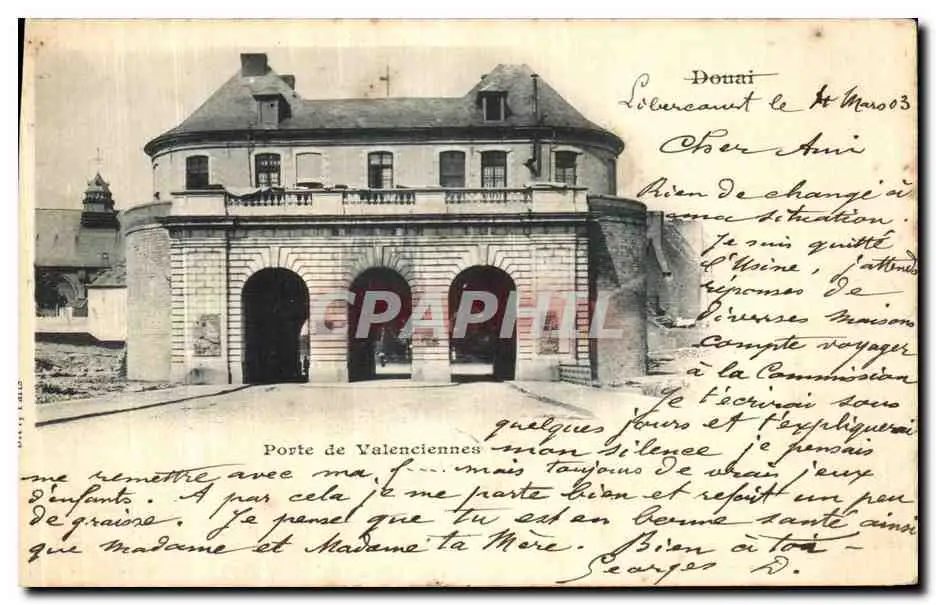 Douai
Libercourt le 11 Mars 03
Cher Ami
Rien de changé à
ma situation.
Je suis quitté
l'Usine, j'attends
reponses de
diverses maisons
compte voyager
à la Commission
Je t'écrirai sous
quelques jours et t'expliquerai
Porte de Valenciennes
mon silence je pensais
me remettre avec ma f.... mais toujours de vrais jeux
d'enfants. A part cela je me porte bien et refait un peu
de graisse. Je pense que tu est en bonne santé ainsi
que Madame et Madame ta Mère. Bien à toi
Georges D.
CPAPHIL